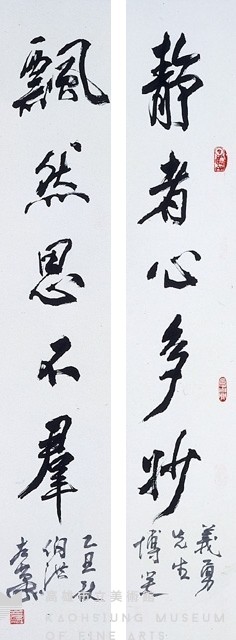 靜者心多妙
義勇
先生
博笑
飄然思不羣
乙丑秋
高雄市立美術館
KAOHSIUNG MUSEUM
OF FINE ARTS